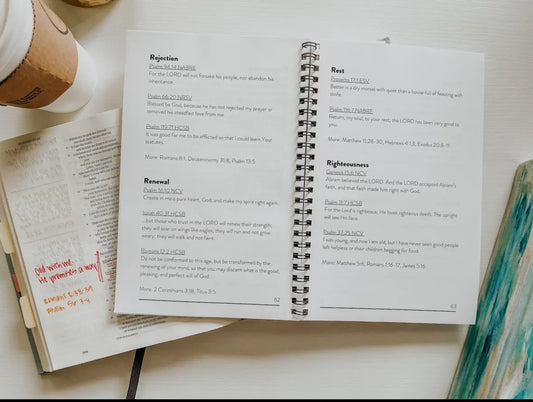 Rejection
Psalm 94:14 NABRE
For the LORD will not forsake his people, nor abandon his
inheritance.
Psalm 66:20 NRSV
Blessed be God, because he has not rejected my prayer or
removed his steadfast love from me.
Psalm 119:71 HCSB
It was good for me to be afflicted so that I could learn Your
statutes.
More: Romans 8:1, Deuteronomy 31:8, Psalm 13:5
Renewal
Psalm 51:10 NCV
Create in me a pure heart, God, and make my spirit right again.
Isaiah 40:31 HCSB
...but those who trust in the LORD will renew their strength;
they will soar on wings like eagles; they will run and not grow
weary; they will walk and not faint.
Romans 12:2 HCSB
Do not be conformed to this age, but be transformed by the
renewing of your mind, so that you may discern what is the good,
pleasing, and perfect will of God.
More: 2 Corinthians 3:18, Titus 3:5
62
Rest
Proverbs 17:1 ESV
Better is a dry morsel with quiet than a house full of feasting with
strife.
Psalm 116:7 NABRE
Return, my soul, to your rest; the LORD has been very good to
you.
More: Matthew 11:28-30, Hebrews 4:1,3, Exodus 20:8-11
Righteousness
Genesis 15:6 NCV
Abram believed the LORD. And the LORD accepted Abram's
faith, and that faith made him right with God.
Psalm 11:7 HCSB
For the Lord is righteous; He loves righteous deeds. The upright
will see His face.
Psalm 37:25 NCV
I was young, and now I am old, but I have never seen good people
left helpless or their children begging for food.
More: Matthew 5:6, Romans 1:16-17, James 5:16
63
God with me.
He promises a way
Romans 8:38-39
Psalm 56:3-4